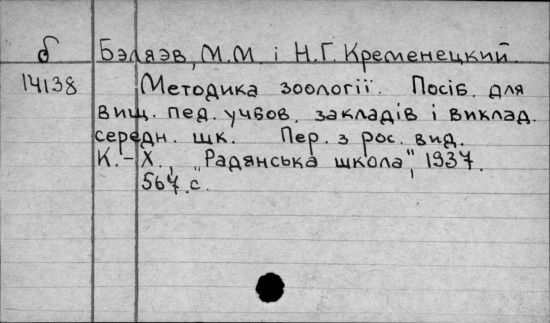 б Бэляэв, М.М. і Н.Г. Кременецкий.
14138 Методика зоології. Посіб. для
вищ. пед. учбов. закладів і виклад.
середн. шк. Пер. з рос. вид.
К.-Х., "Радянська школа", 1937.
567 с.